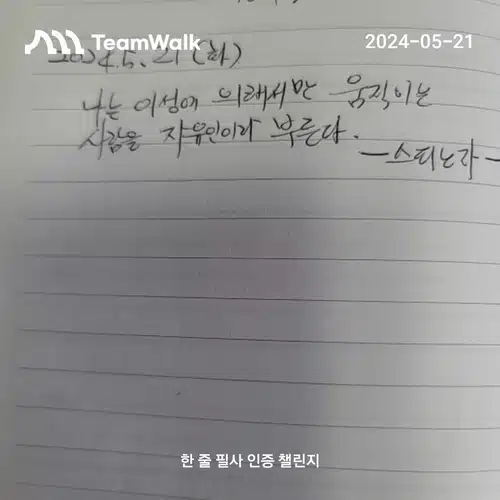 TeamWalk
2024-05-21
2024.5.21(화)
나는 이성에 의해서만 움직이는
사람을 자유인이라 부른다.
-스피노자-
한 줄 필사 인증 챌린지